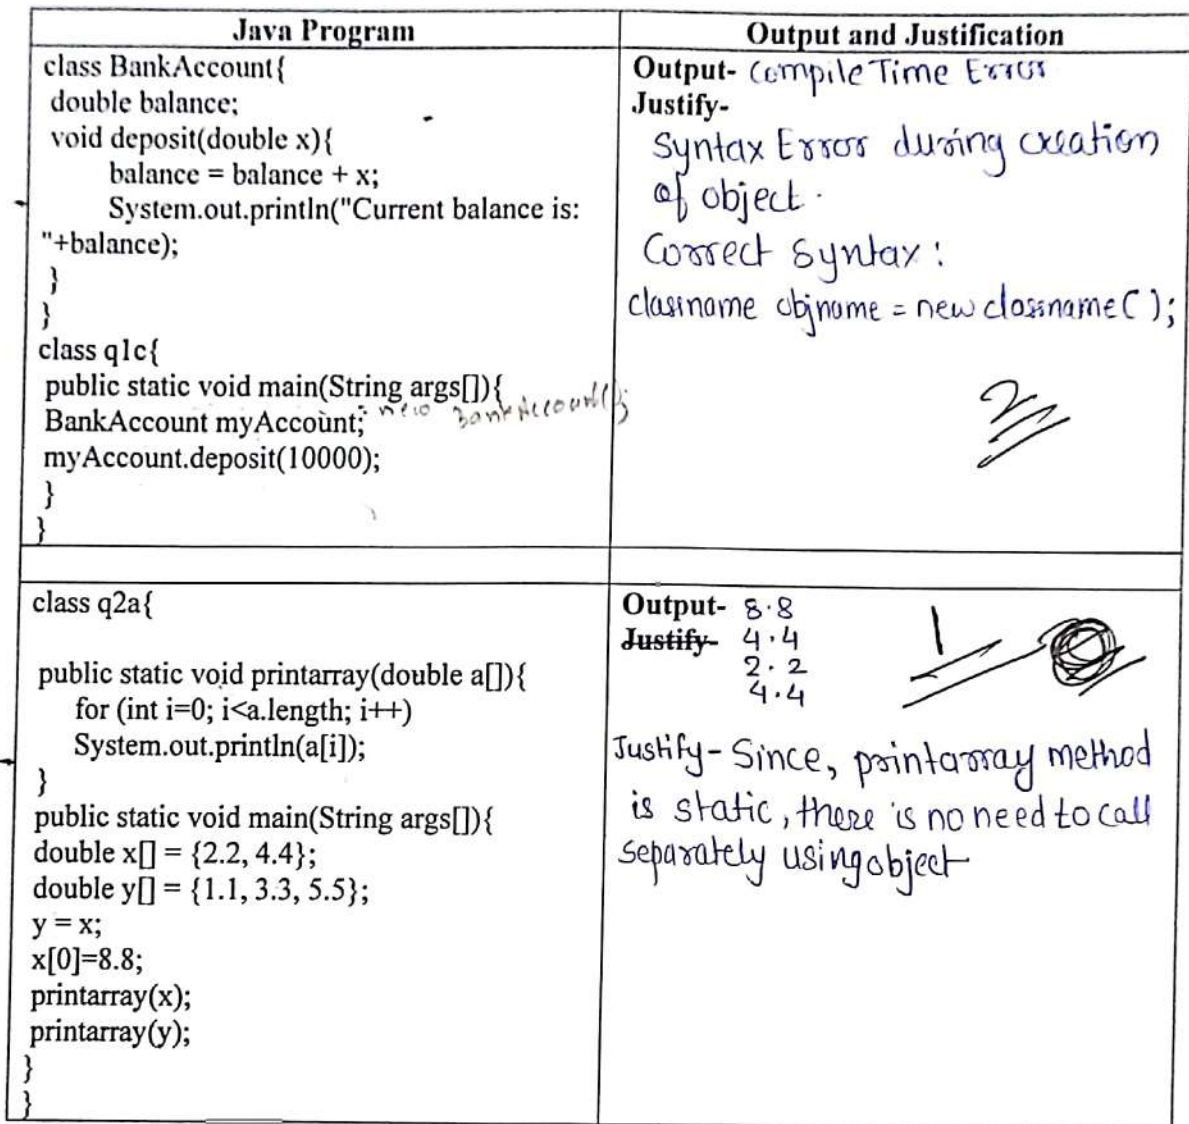 Java Program
Output and Justification
class BankAccount{
double balance;
void deposit(double x){
balance = balance + x;
System.out.println("Current balance is:
"+balance);
}
}
class q1c{
public static void main(String args[]){
BankAccount myAccount; new BankAccount();
myAccount.deposit(10000);
}
}
Output- Compile Time Error
Justify-
Syntax Error during creation
of object.
Correct Syntax:
classname objname = new classname();
2
class q2a{
public static void printarray(double a[]){
for (int i=0; i<a.length; i++)
System.out.println(a[i]);
}
public static void main(String args[]){
double x[] = {2.2, 4.4};
double y[] = {1.1, 3.3, 5.5};
y = x;
x[0]=8.8;
printarray(x);
printarray(y);
}
}
Output- 8.8
Justify- 4.4
2.2
4.4
1
Justify- Since, printarray method
is static, there is no need to call
separately using object